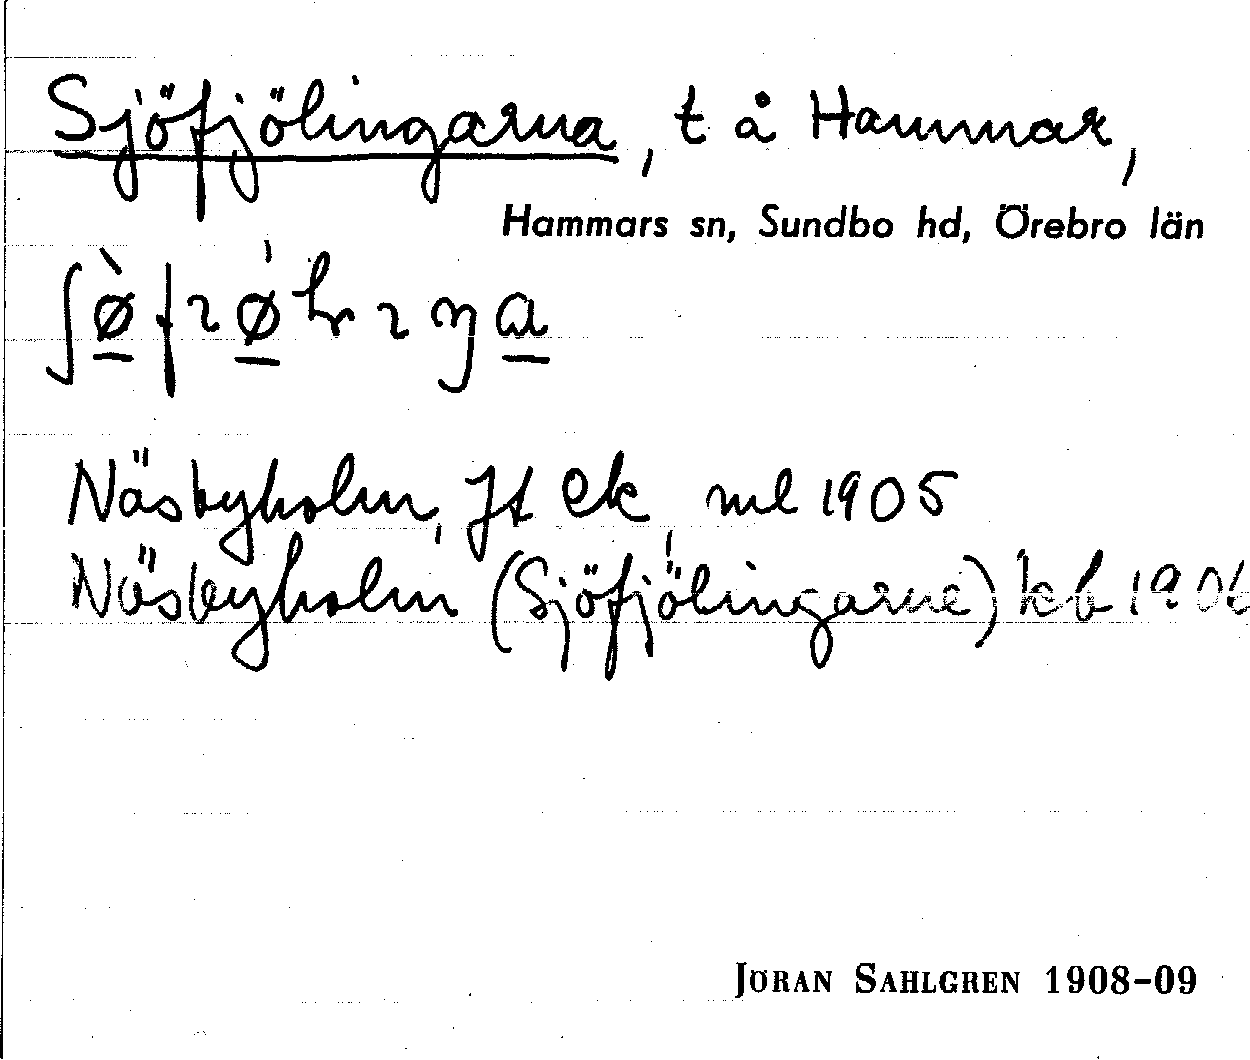 Sjöfjölingarna, t å Hammar,
Hammars sn, Sundbo hd, Örebro län
Näsbyholm, Jt ek, ml 1905
Näsbyholm (Sjöfjölingarne) kb 1906
JÖRAN SAHLGREN 1908-09